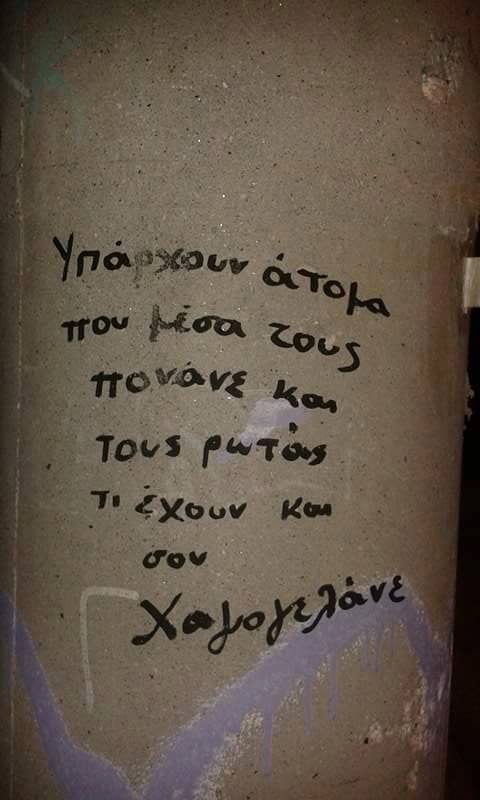 Υπάρχουν άτομα
που μέσα τους
πονάνε και
τους ρωτάς
τι έχουν και
σου
χαμογελάνε